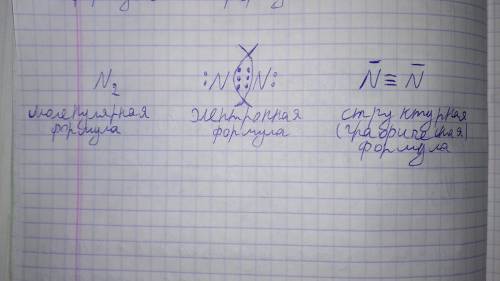 N₂
:N⋮⋮N:
N̄ ≡ N̄
молекулярная
формула
электронная
формула
структурная
(графическая)
формула